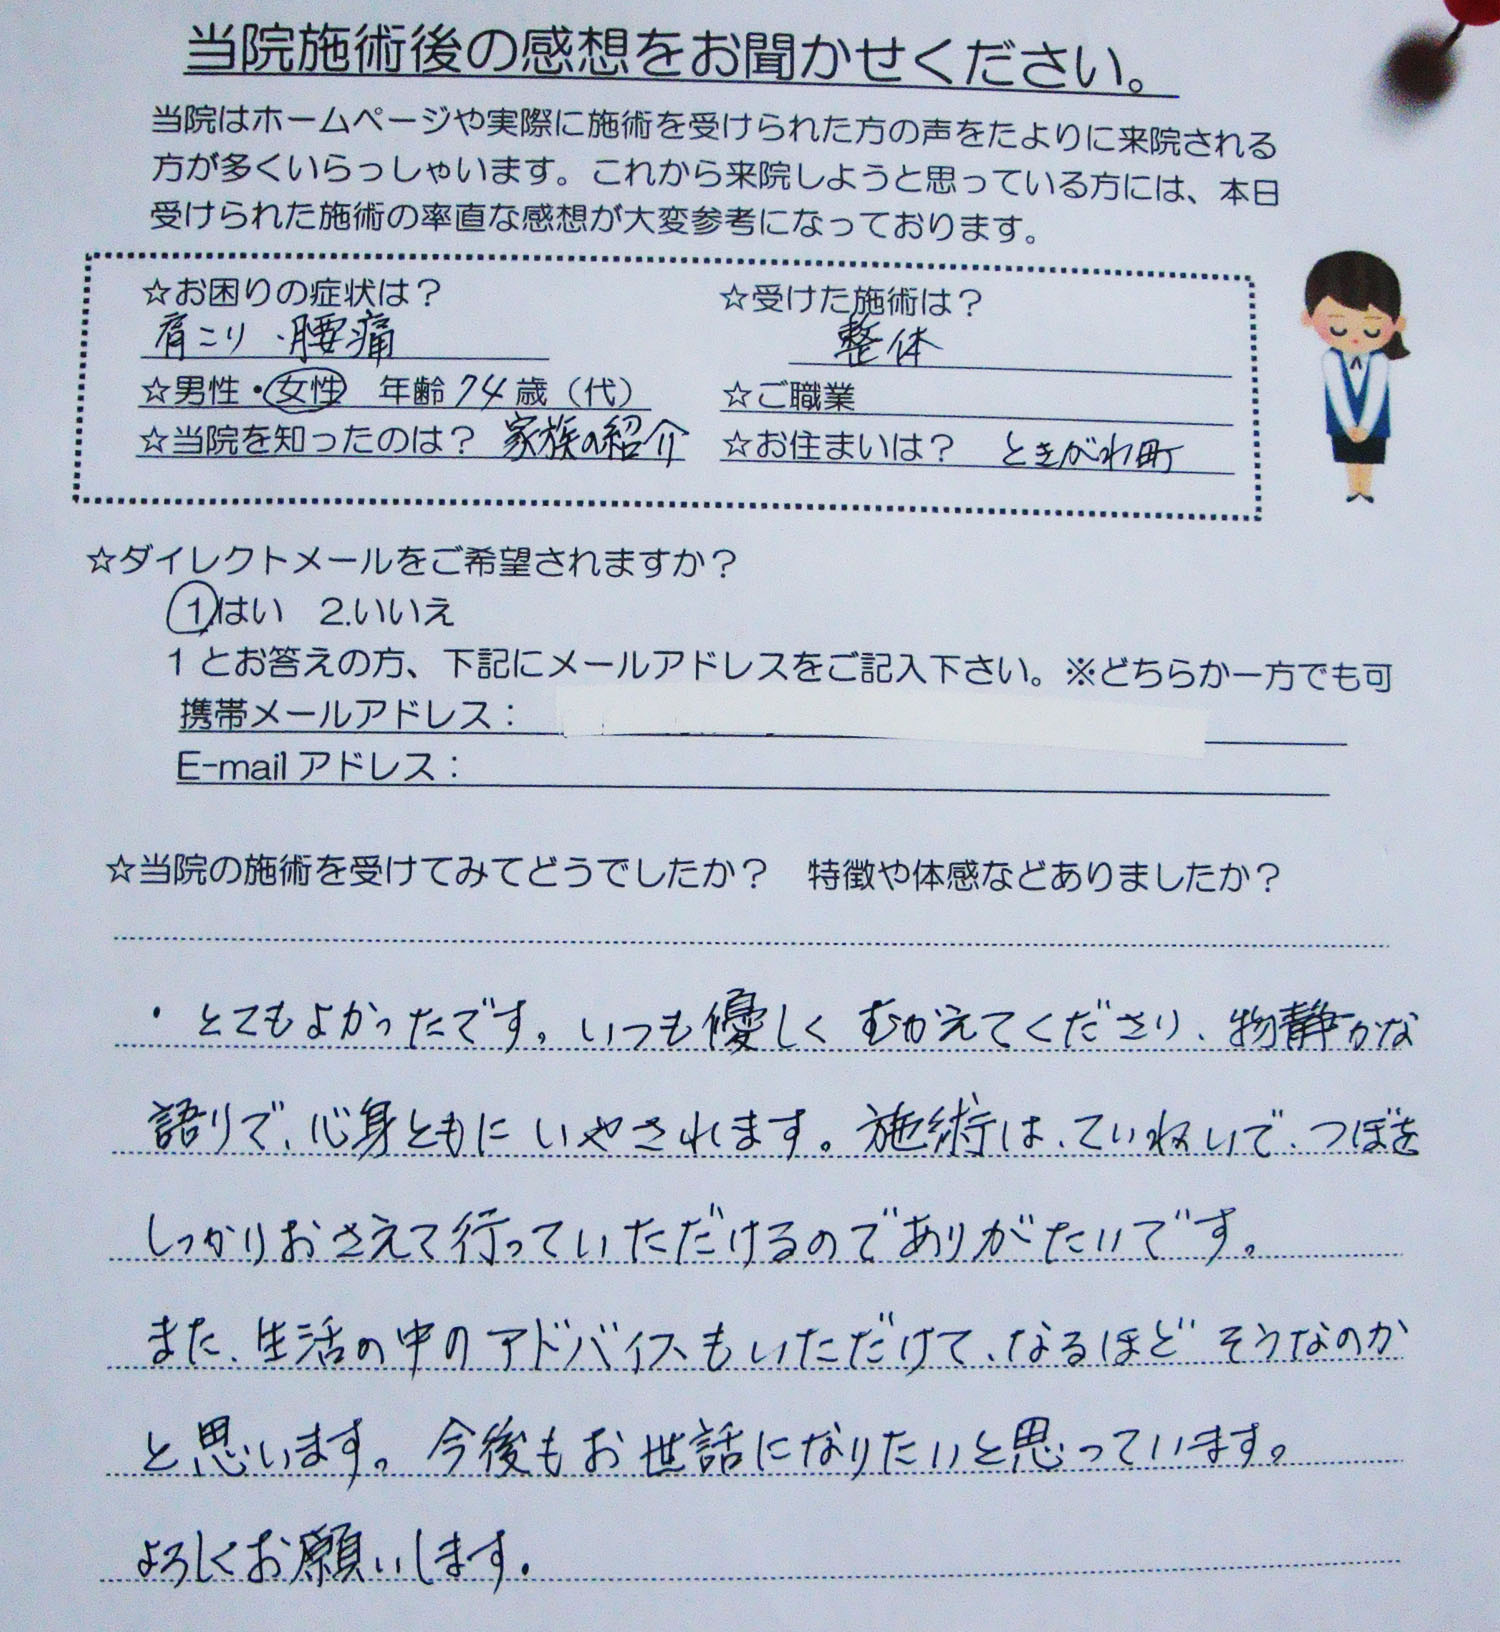 当院施術後の感想をお聞かせください。
当院はホームページや実際に施術を受けられた方の声をたよりに来院される
方が多くいらっしゃいます。これから来院しようと思っている方には、本日
受けられた施術の率直な感想が大変参考になっております。
☆お困りの症状は？ ☆受けた施術は？
肩こり、腰痛 整体
☆男性・女性 年齢74歳（代） ☆ご職業
☆当院を知ったのは？ 家族の紹介 ☆お住まいは？ ときがわ町
☆ダイレクトメールをご希望されますか？
1.はい 2.いいえ
1とお答えの方、下記にメールアドレスをご記入下さい。※どちらか一方でも可
携帯メールアドレス：
E-mailアドレス：
☆当院の施術を受けてみてどうでしたか？ 特徴や体感などありましたか？
・とてもよかったです。いつも優しくむかえてくださり、物静かな
語りで、心身ともにいやされます。施術は、ていねいで、つぼを
しっかりおさえて行っていただけるのでありがたいです。
また、生活の中のアドバイスもいただけて、なるほどそうなのか
と思います。今後もお世話になりたいと思っています。
よろしくお願いします。